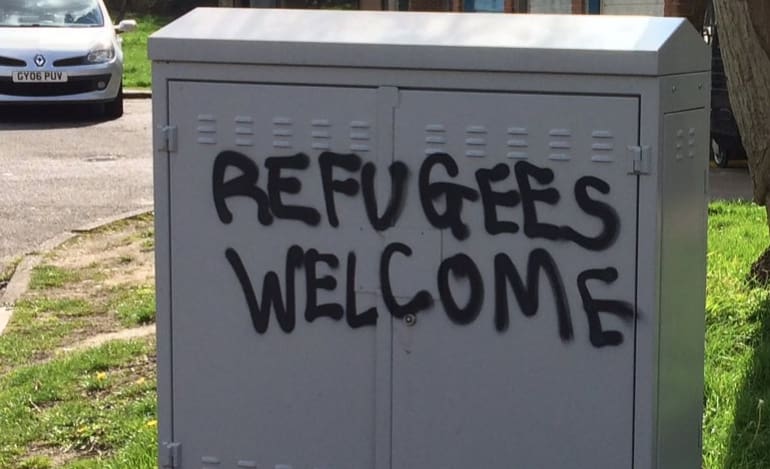 GY06 PUV
REFUGEES
WELCOME